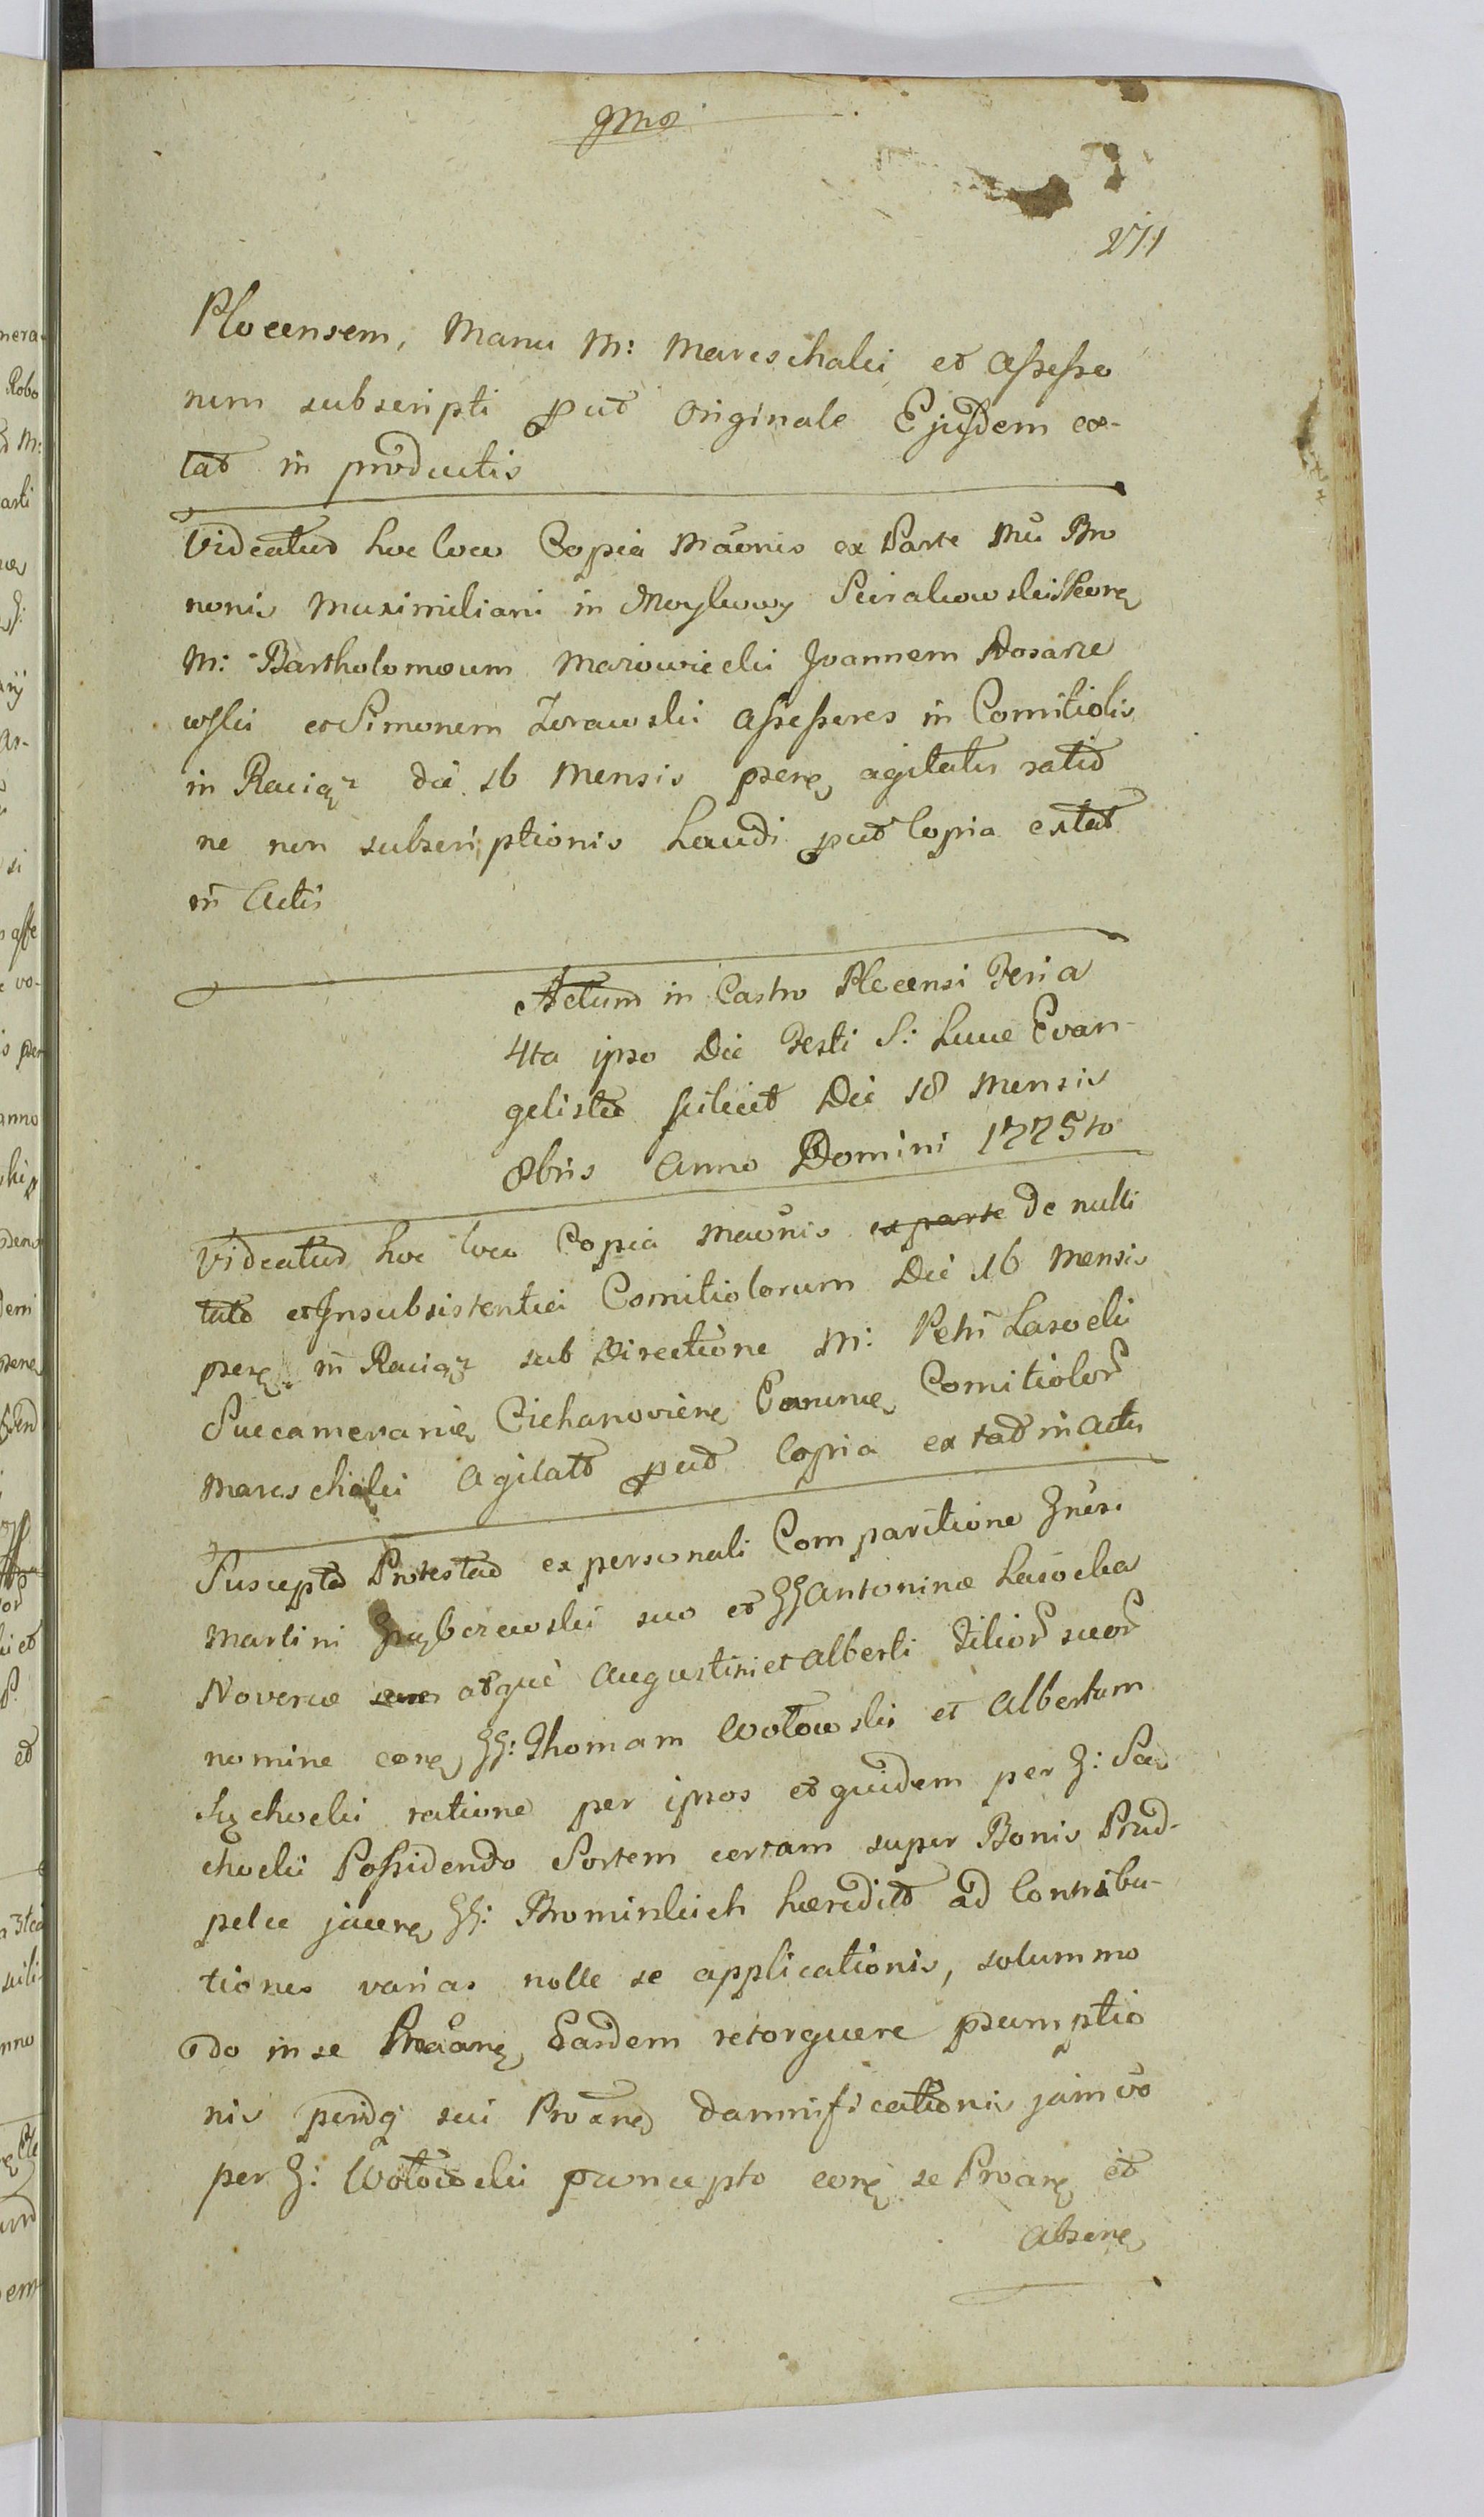 271
Plocensem, Manu M: Mareschalci et Assesso
rum subscripti put Originale Ejusdem ex-
tat in productis
Videatur hoc loco Copia Mãonis ex Parte
nonis Maximiliani in Sierakowski
M: Bartholomæum Mazowiecki Joannem Kosarze
wski et Simonem Zorawski Assessores in Comitiolis
in Raciąz die 16 Mensis pserę agitatis ratio
ne non subscriptionis Laudi put Copia extat
in Actis
Actum in Castro Plocensi Feria
4ta ipso Die Festi S: Lucæ Evan-
gelistæ scilicet Die 18 Mensis
8bris Anno Domini 1775to
Videatur hoc loco Copia Maõnis ex parte de nulli
tate et Insubsistentia Comitiolorum Die 16 Mensis
pserę in Raciąz sub Directione M: Petri Lasocki
Succamerarii Ciechanoviensę Comitiolor
Mareschalci Agitat put Copia extat in Actis
Suscepta Protestao ex personali Comparitione
Martini suo et GG Antoninæ Lasocka
Novercæ atque Augustini et Alberti Filior suor
nomine corę GG: Thomam Wołowski et Albertum
Suchocki ratione per ipsos et quidem per G: Su
chocki Possidendo Sortem certam super Bonis Prud-
pelce jacenę GG: Brominskich hæredit ad Contribu-
tiones varias nolle se applicationis, solummo
do in se Eardem retorquere psumptio
nis sui damnificationis jam vo
per G: Wołowski concepto corę se et
Absenę